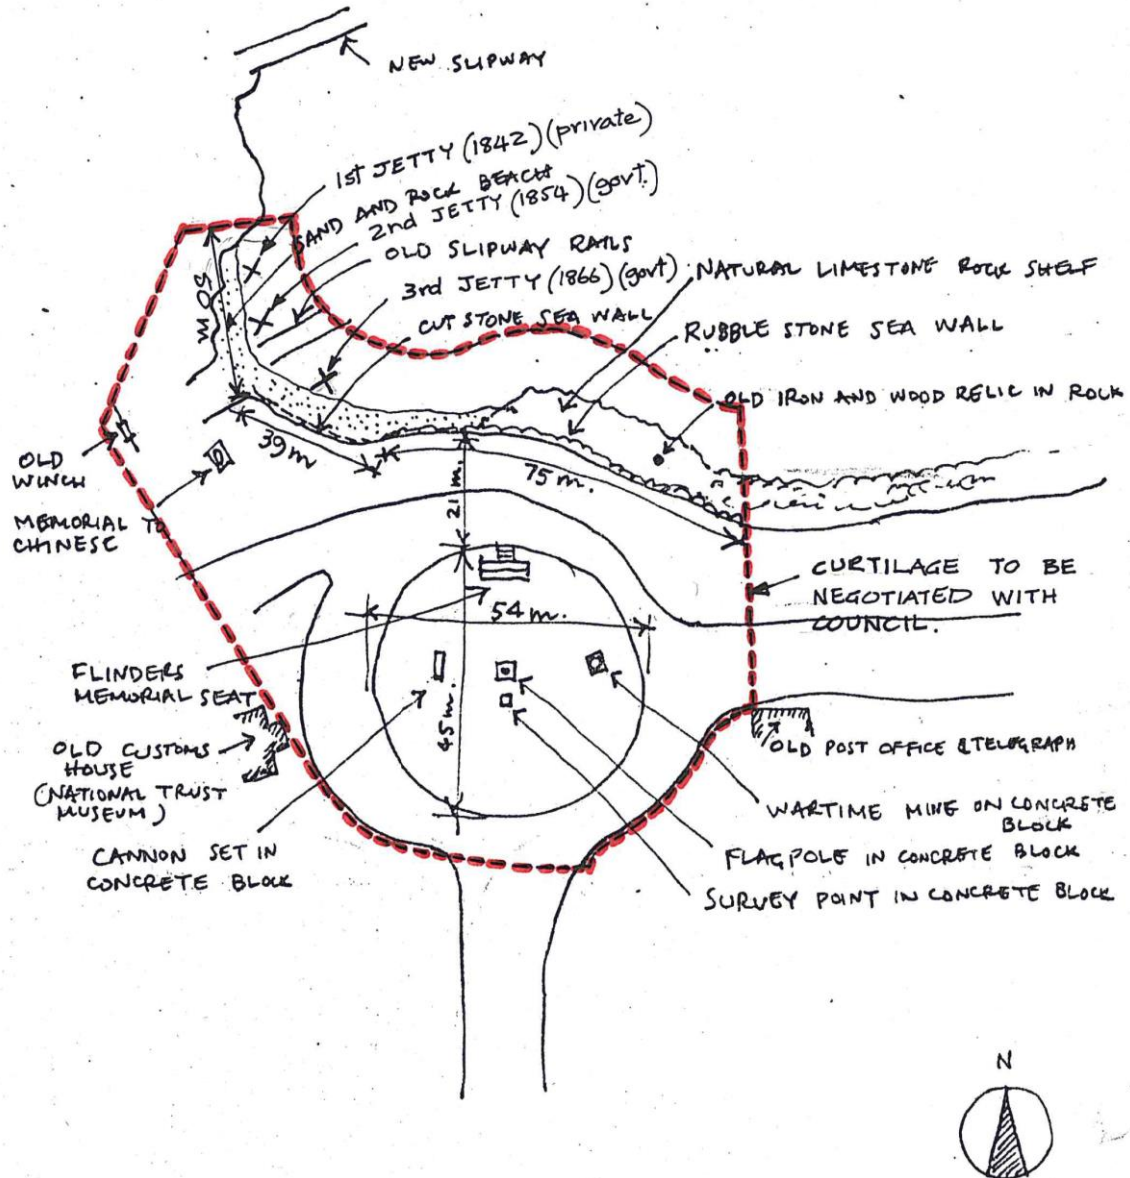 NEW SLIPWAY
1st JETTY (1842) (private)
SAND AND ROCK BEACH
2nd JETTY (1854) (govt.)
OLD SLIPWAY RAILS
3rd JETTY (1866) (govt)
CUT STONE SEA WALL
NATURAL LIMESTONE ROCK SHELF
RUBBLE STONE SEA WALL
OLD IRON AND WOOD RELIC IN ROCK
50 m
39 m
75 m.
21 m.
OLD
WINCH
MEMORIAL TO
CHINESE
CURTILAGE TO BE
NEGOTIATED WITH
COUNCIL.
54 m.
45 m.
FLINDERS
MEMORIAL SEAT
OLD CUSTOMS
HOUSE
(NATIONAL TRUST
MUSEUM)
OLD POST OFFICE & TELEGRAPH
WARTIME MINE ON CONCRETE
BLOCK
CANNON SET IN
CONCRETE BLOCK
FLAGPOLE IN CONCRETE BLOCK
SURVEY POINT IN CONCRETE BLOCK
N